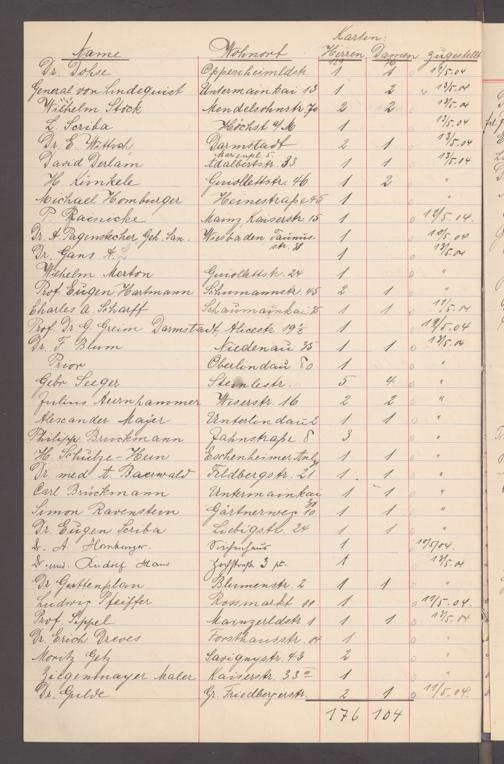 Karten:
Name Wohnort Herren Damen zugestellt
Dr. Dohse Oppenheimldstr 1 1 0 12/5.04
General von Lindequist Untermainkai 13 1 2 12/5.04
Wilhelm Stock Mendelsohnstr 70 2 2 12/5.04
L. Scriba Höchst a/M 1 12/5.04
Dr. E. Wittich Darmstadt 2 1 0 12/5.04
David Derlam Adalbertstr. 33 1 1 0 12/5.04
H. Künkele Guiollettstr. 46 1 2 "
Michael Homburger Heinestraße 45 1 "
P. Reinicke Mainz Kaiserstr 15 1 0 12/5.04.
Dr. H. Pagenstecher, Geh. San. Wiesbaden Taunus- str. 1 0 12/5.04
Dr. Gans A. 1 0 12/5.04
Wilhelm Merton Guiollettstr. 24 1 0 "
Prof Eugen Hartmann Schumannstr. 45 2 1 0 "
Charles A. Scharff Schaumainkai 1 1 0 12/5.04
Prof. Dr. G. Greim Darmstadt Alicestr 19 1 0 12/5.04
Dr. F. Blum Niedenau 1 1 0 12/5.04
Prior Oberlindau 80 1 0 "
Gebr Seeger Steinlestr. 5 4 0 "
Julius Auernhammer Weserstr. 16 2 2 "
Alexander Majer Unterlindau 2 1 1 0 "
Philipp Bruckmann Jahnstraße 8 3 0 "
H. Schultze-Hein Eschenheimer Anlg 1 1 0 "
Dr. med. A. Baerwald Feldbergstr. 1 1 0 "
Carl Brückmann Untermainkai 1 1 0 "
Simon Ravenstein Gärtnerweg 1 1 0 "
Dr. Eugen Scriba Liebigstr. 24 1 1 0 "
Dr. A. Homburger 1 0 12/5/04.
Dr. med. Rudolf Haas 1 12/5.04
Dr. Grettenplan Blumenstr 2 1 1 0 "
Ludwig Pfeiffer Rossmarkt 1 0 12/5.04.
Prof. Sippel Mainzerldstr 1 1 0 12/5.04
Dr. Erich Dreves Forsthausstr. 1 0 "
Moritz Getz Savignystr. 43 2 "
Ziegentmayer Maler Kaiserstr. 33 1 0 "
Dr. Gulde Gr. Friedbergerstr. 2 1 0 12/5.04.
176 104